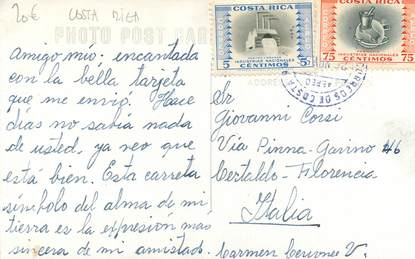 20€ COSTA RICA
PHOTO POST CARD
Amigo mío: encantada
con la bella tarjeta
que me envió. Hace
días no sabía nada
de usted, ya veo que
está bien. Esta carreta
símbolo del alma de mi
tierra es la expresión más
sincera de mi amistad.
COSTA RICA
INDUSTRIAS NACIONALES
5 CENTIMOS 5
COSTA RICA
INDUSTRIAS NACIONALES
75 CENTIMOS 75
CORREOS DE COSTA
AEREO
Sr
Giovanni Corsi
Via Pinna-Gavino 46
Certaldo-Florencia
Italia
Carmen Cerdones V.